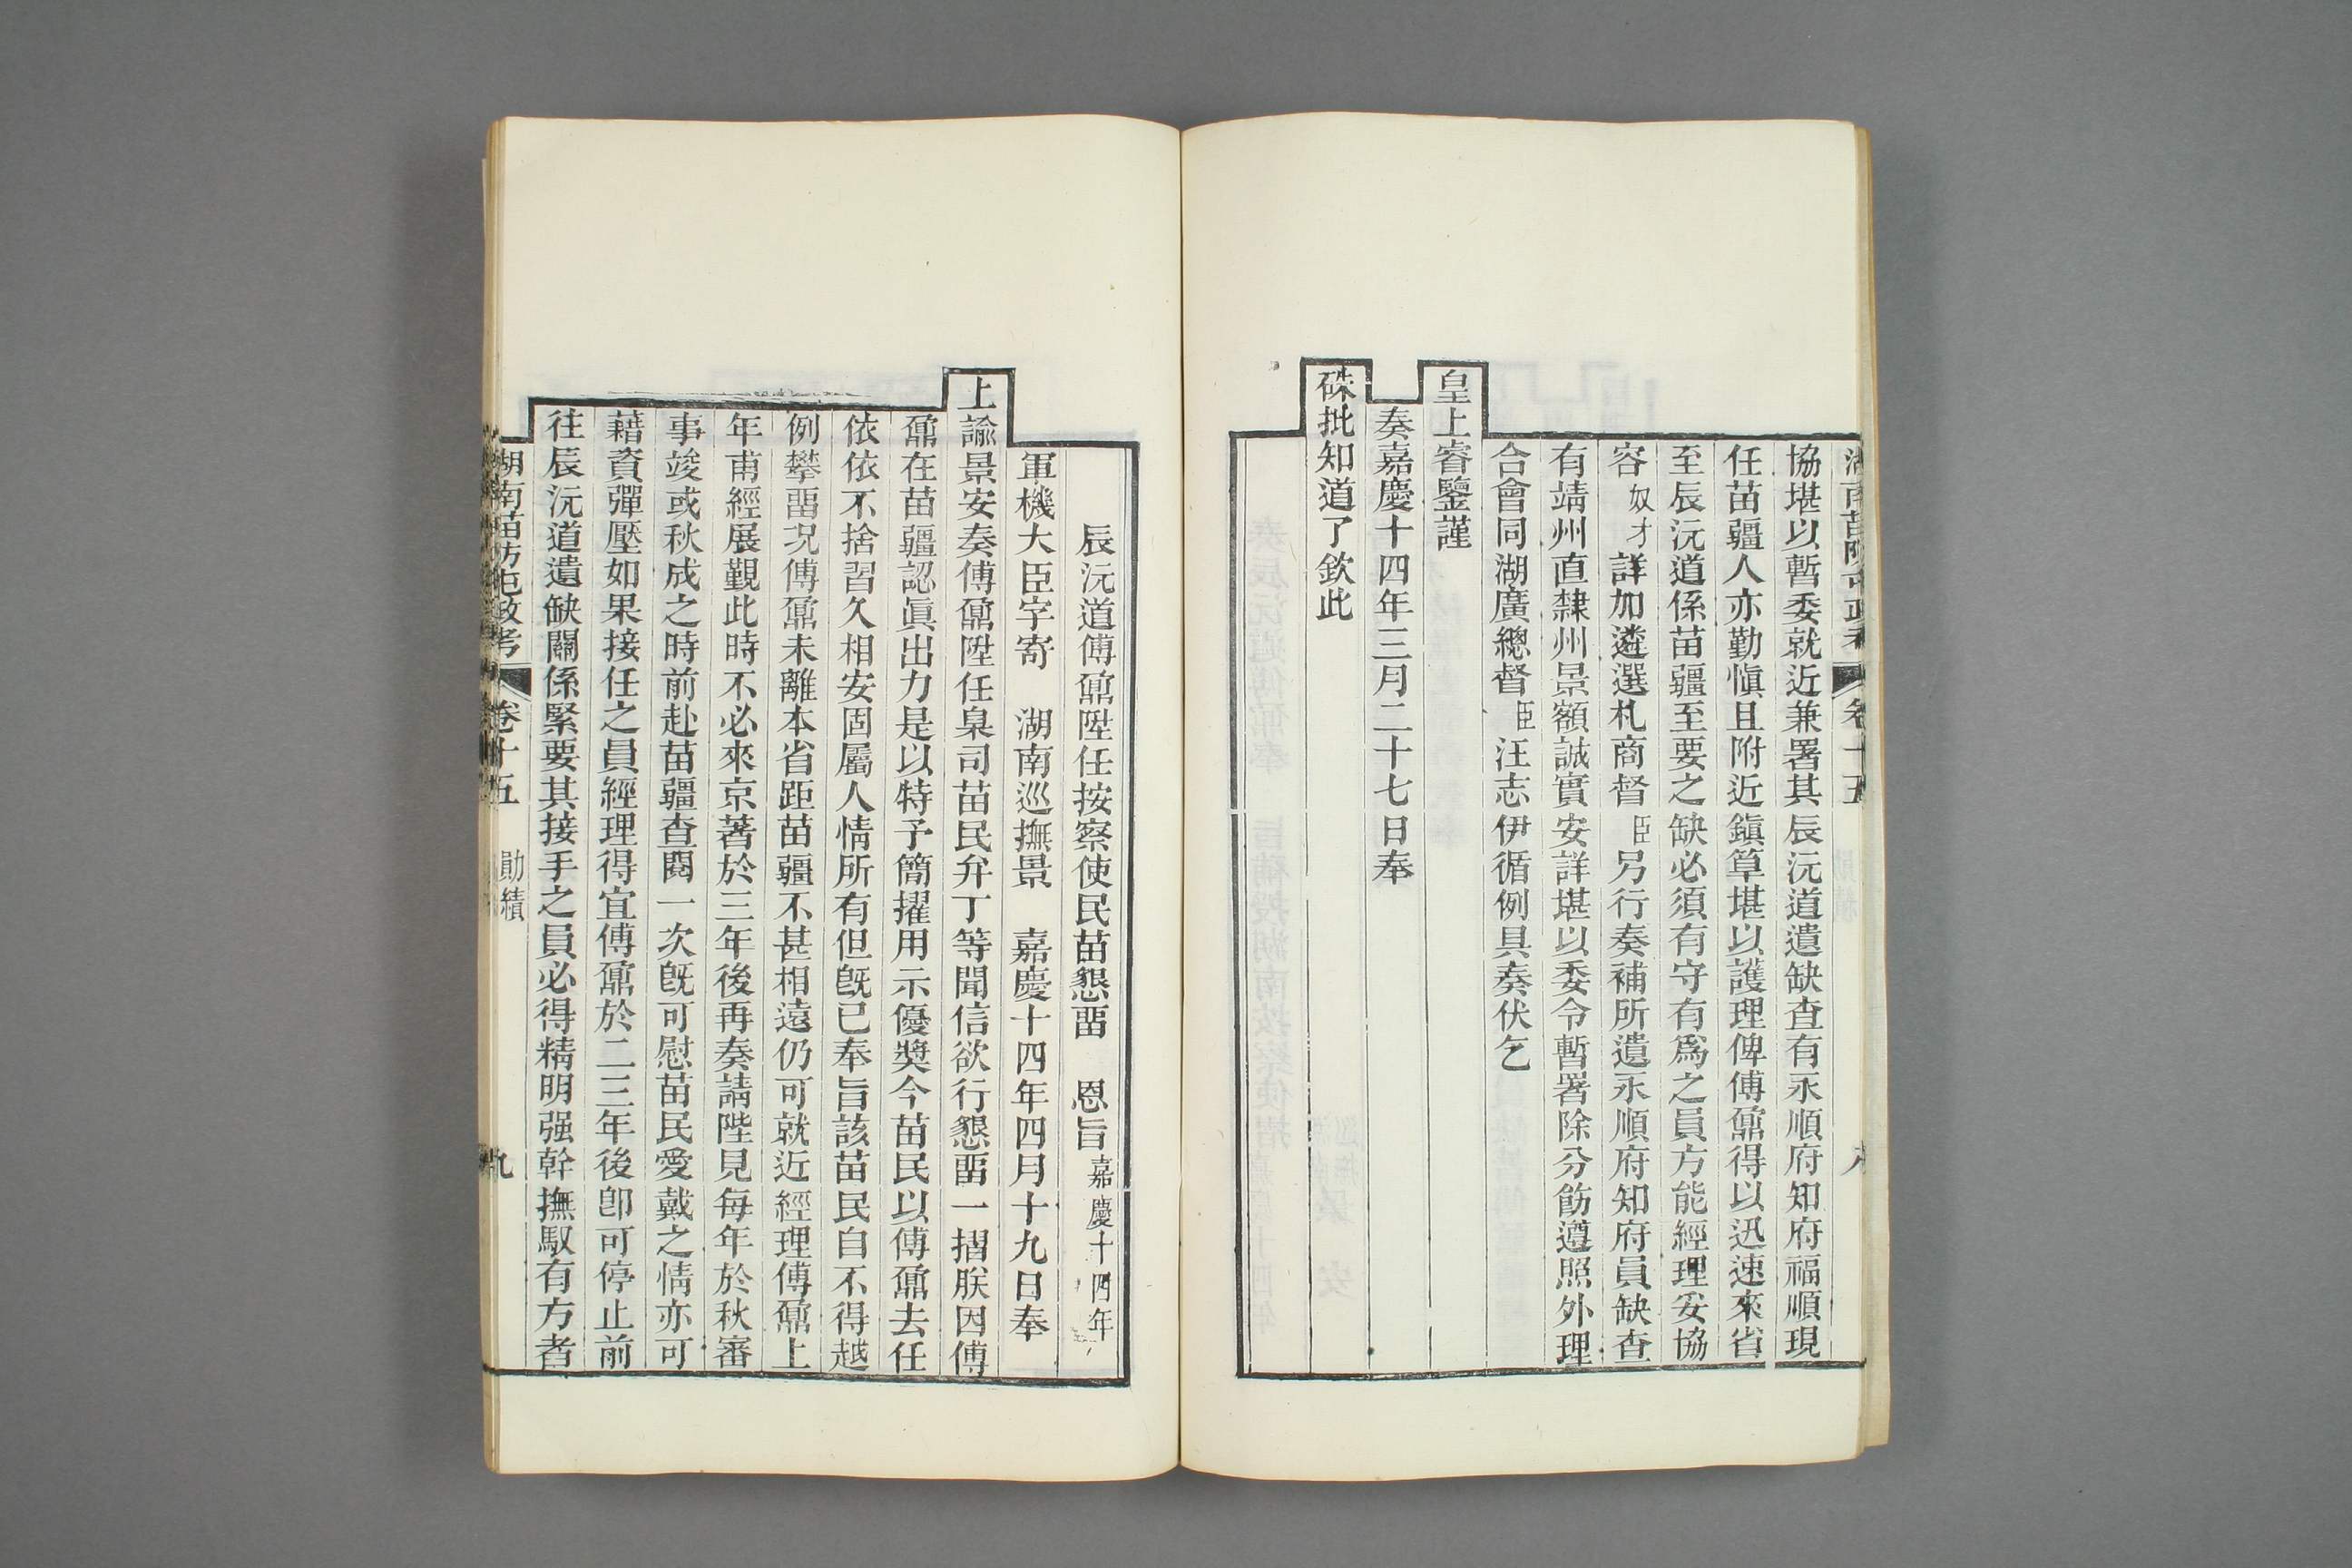 湖南苗防屯政考 卷十五 勛績 八
協堪以暫委就近兼署其辰沅道遺缺查有永順府知府福順現
任苗疆人亦勤愼且附近鎭筸堪以護理俾傅鼐得以迅速來省
至辰沅道係苗疆至要之缺必須有守有爲之員方能經理妥協
容奴才詳加遴選札商督臣另行奏補所遺永順府知府員缺查
有靖州直隸州景額誠實安詳堪以委令暫署除分飭遵照外理
合會同湖廣總督臣汪志伊循例具奏伏乞
皇上睿鑒謹
奏嘉慶十四年三月二十七日奉
硃批知道了欽此
辰沅道傅鼐陞任按察使民苗懇畱 恩旨 嘉慶十四年
軍機大臣字寄 湖南巡撫景 嘉慶十四年四月十九日奉
上諭景安奏傅鼐陞任臬司苗民弁丁等聞信欲行懇畱一摺朕因傅
鼐在苗疆認眞出力是以特予簡擢用示優奬今苗民以傅鼐去任
依依不捨習久相安固屬人情所有但旣已奉旨該苗民自不得越
例攀畱况傅鼐未離本省距苗疆不甚相遠仍可就近經理傅鼐上
年甫經展覲此時不必來京著於三年後再奏請陛見每年於秋審
事竣或秋成之時前赴苗疆查閱一次旣可慰苗民愛戴之情亦可
藉資彈壓如果接任之員經理得宜傅鼐於二三年後卽可停止前
往辰沅道遺缺關係緊要其接手之員必得精明强幹撫馭有方者
湖南苗防屯政考 卷十五 勛績 九